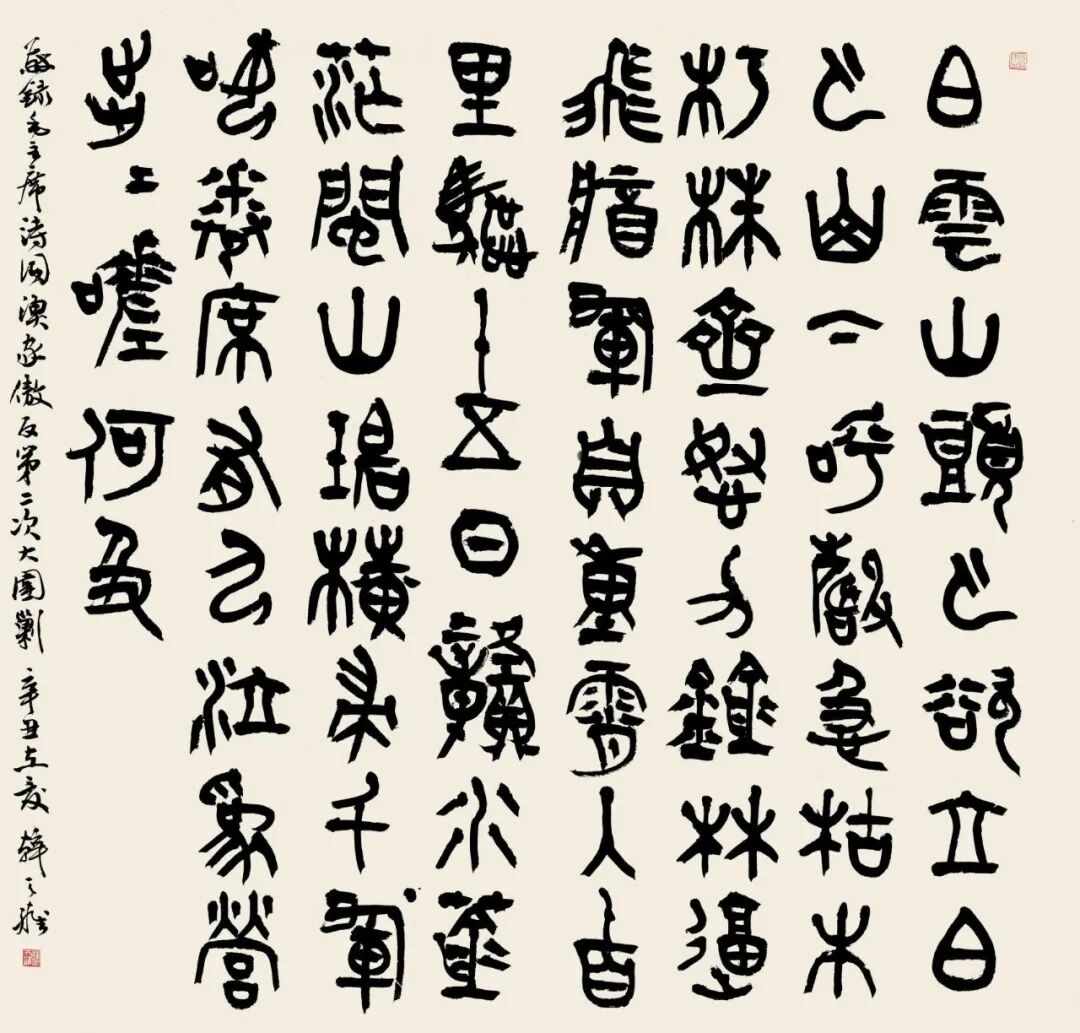 白雲山頭云欲立白
云山下呼聲急枯木
朽株齊努力鎗林逼
飛將軍自重霄入七百
里驅十五日贛水蒼
茫閩山碧橫掃千軍
如卷席有人泣為營
步〻嗟何及
敬録毛主席詩詞漁家傲反第二次大圍剿 辛丑立夏 韓天雍